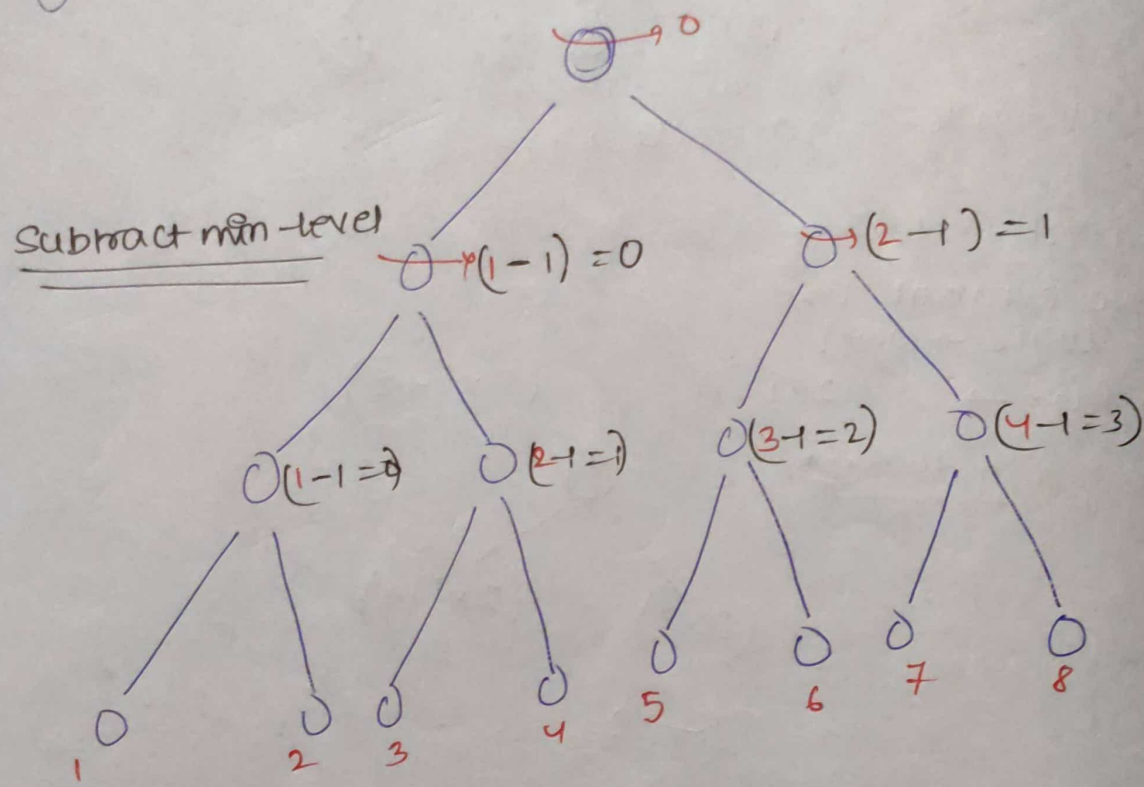 0
Subract min-level
(1-1)=0
(2-1)=1
(1-1=0)
(2-1=1)
(3-1=2)
(4-1=3)
1
2
3
4
5
6
7
8